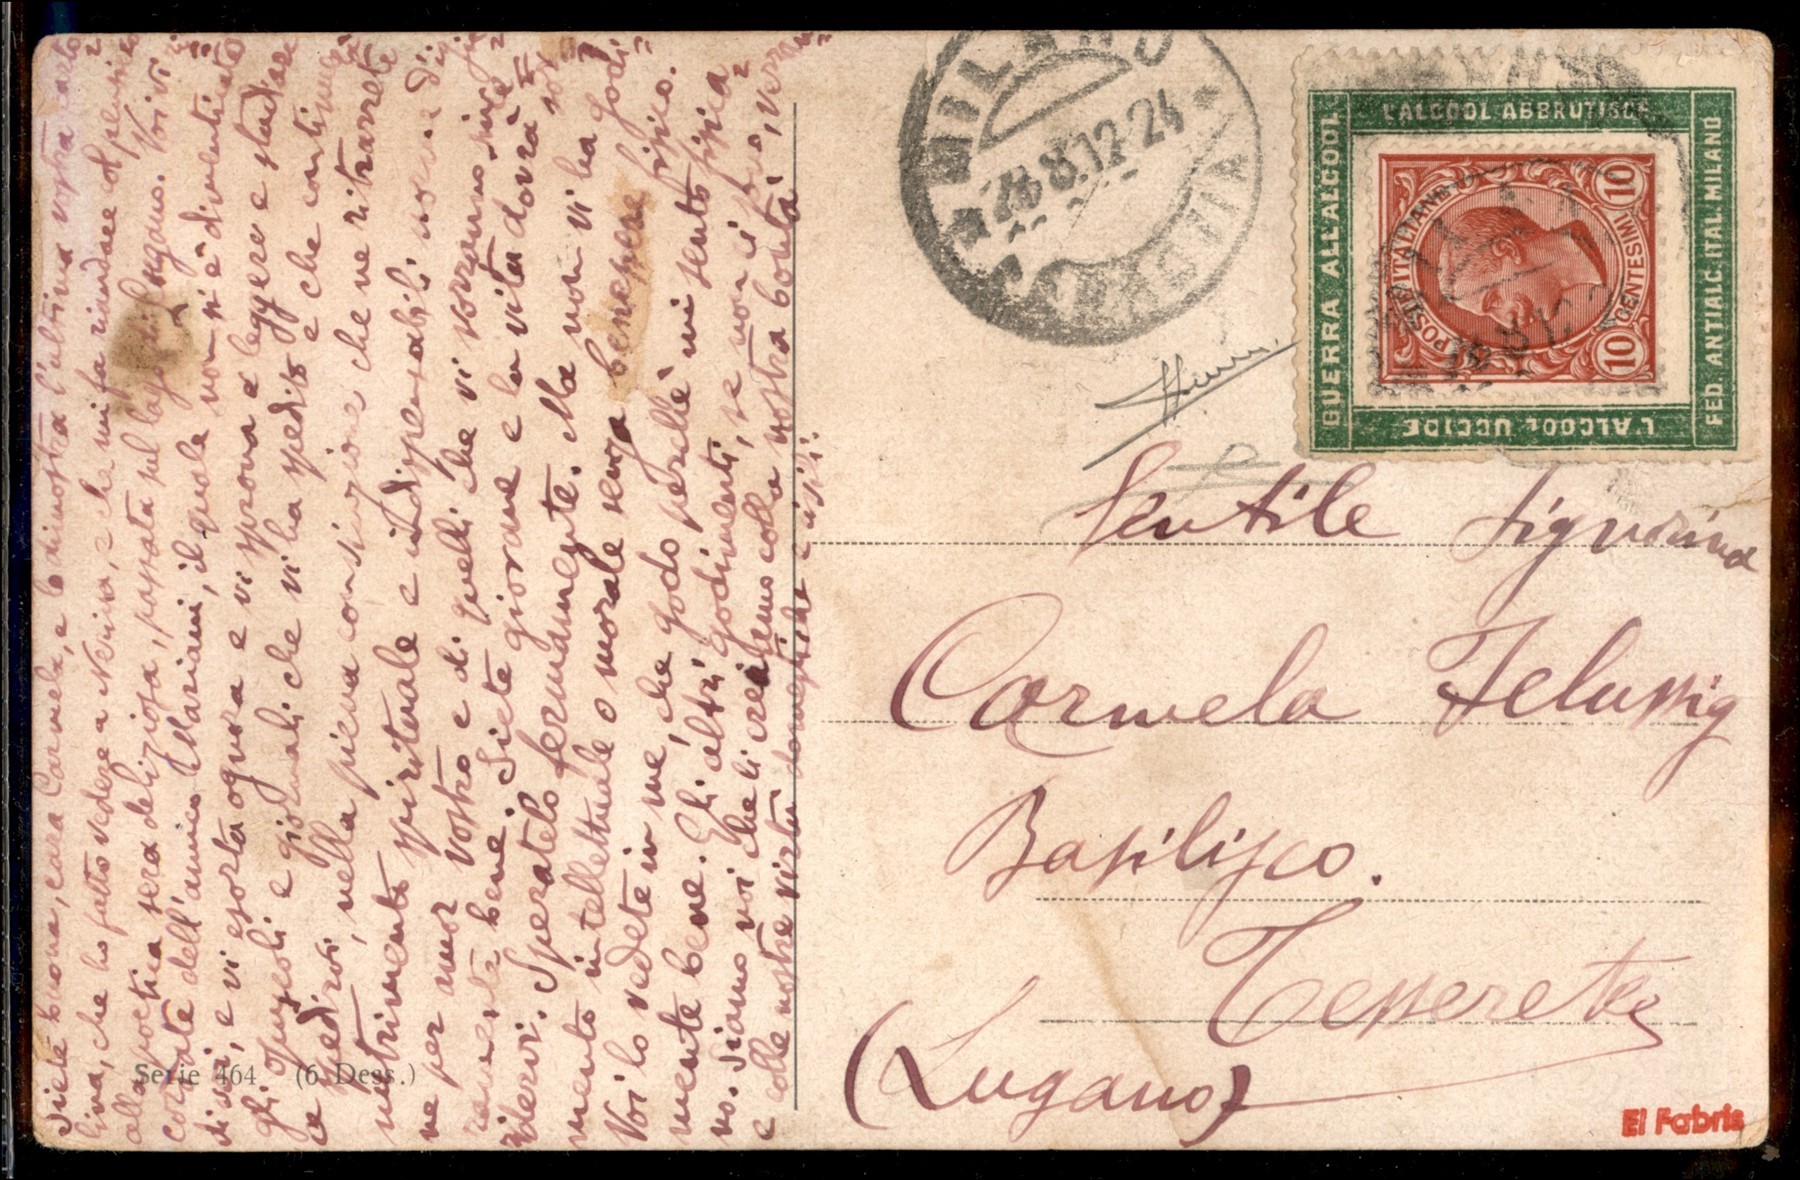 Siete buona, cara Carmela, e lo dimostra l'ultima vostra carto=
lina, che ho fatto vedere a Nerina, e che mi fa riandare col pensiero
alla poetica sera deliziosa, passata sul lago di Lugano. Voi vi ri=
cordate dell'amico Mariani, il quale non si è dimenticato
di voi, e vi esorta ognora e vi sprona a leggere e studiare
gli opuscoli e giornali che vi ha spedito e che continuerà
a spedirvi, nella piena convinzione che ne ritrarrete
nutrimento spirituale e indispensabili
ne per amor vostro e di quelli che vi vorranno
bene. Siete giovane e la vita dovrà
. Speratelo fermamente. Ma non vi ha godi=
mento intellettuale o morale senza benessere fisico.
Voi lo vedete in me, che godo perchè mi sento fisica=
mente bene. Gli altri godimenti, se non ci sono, verran=
no. Siamo noi che li creiamo colla nostra bontà,
e colle nostre virtù domestiche e civili.
Serie 464 (6 Dess.)
MILANO
26.8.12-24
GUERRA ALL'ALCOOL
L'ALCOOL ABBRUTISCE
FED. ANTIALC. ITAL. MILANO
L'ALCOOL UCCIDE
POSTE ITALIANE
10 CENTESIMI 10
Gentile Signorina
Carmela Felussig
Basilisco.
Tesserete
(Lugano)
El Fabris